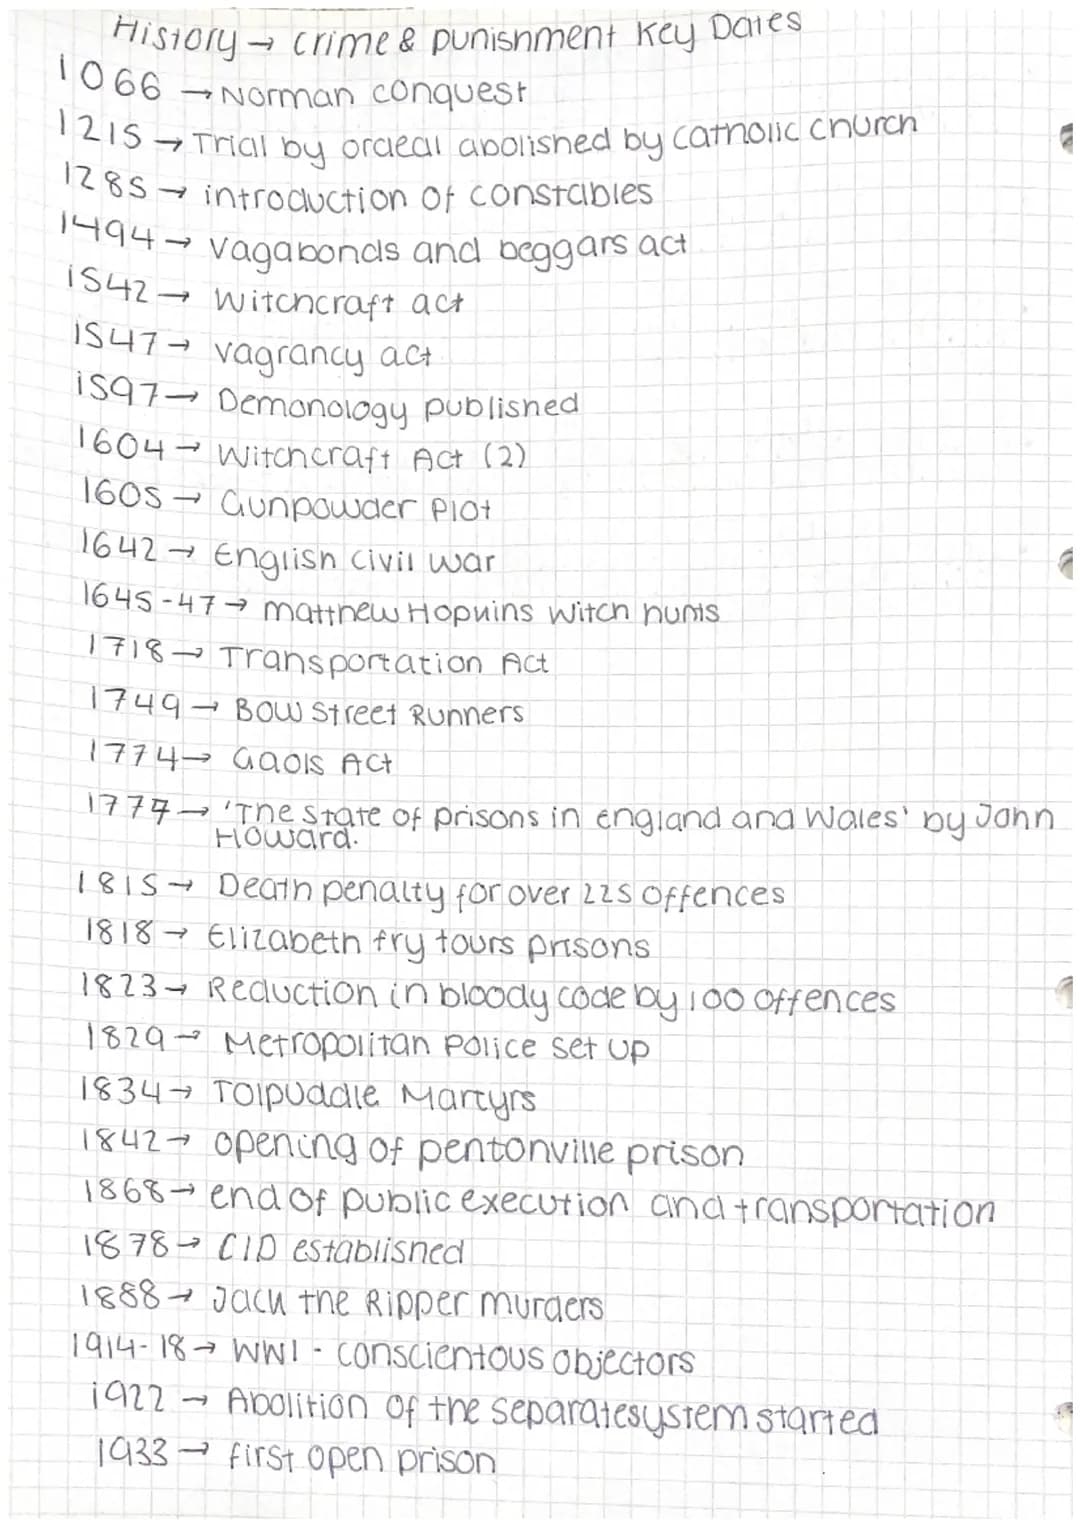 History → crime & punishment Key Dates
1066 → Norman conquest
1215 → Trial by ordeal abolished by catholic church
1285 → introduction of constables
1494 → vagabonds and beggars act
1542 → Witchcraft act
1547 → vagrancy act
1597 → Demonology published
1604 → Witchcraft Act (2)
1605 → Gunpowder Plot
1642 → English civil war
1645-47 → matthew Hopkins witch hunts
1718 → Transportation Act
1749 → Bow Street Runners
1774 → Gaols Act
1777 → 'The State of prisons in england and Wales' by John
Howard.
1815 → Death penalty for over 225 offences
1818 → Elizabeth fry tours prisons
1823 → Reduction in bloody code by 100 offences
1829 → Metropolitan Police set up
1834 → Tolpuddle Martyrs
1842 → opening of pentonville prison
1868 → end of public execution and transportation
1878 → CID established
1888 → Jack the Ripper murders
1914-18 → WW1 - conscientous objectors
1922 → Abolition of the separate system started
1933 → first open prison